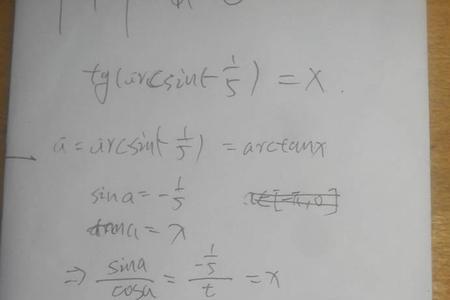 tg(arcsin(-1/5) = x.
a = arcsin(-1/5) = arctanx
sina = -1/5
tana = x
⇒ sina/cosa = -1/5/t = x